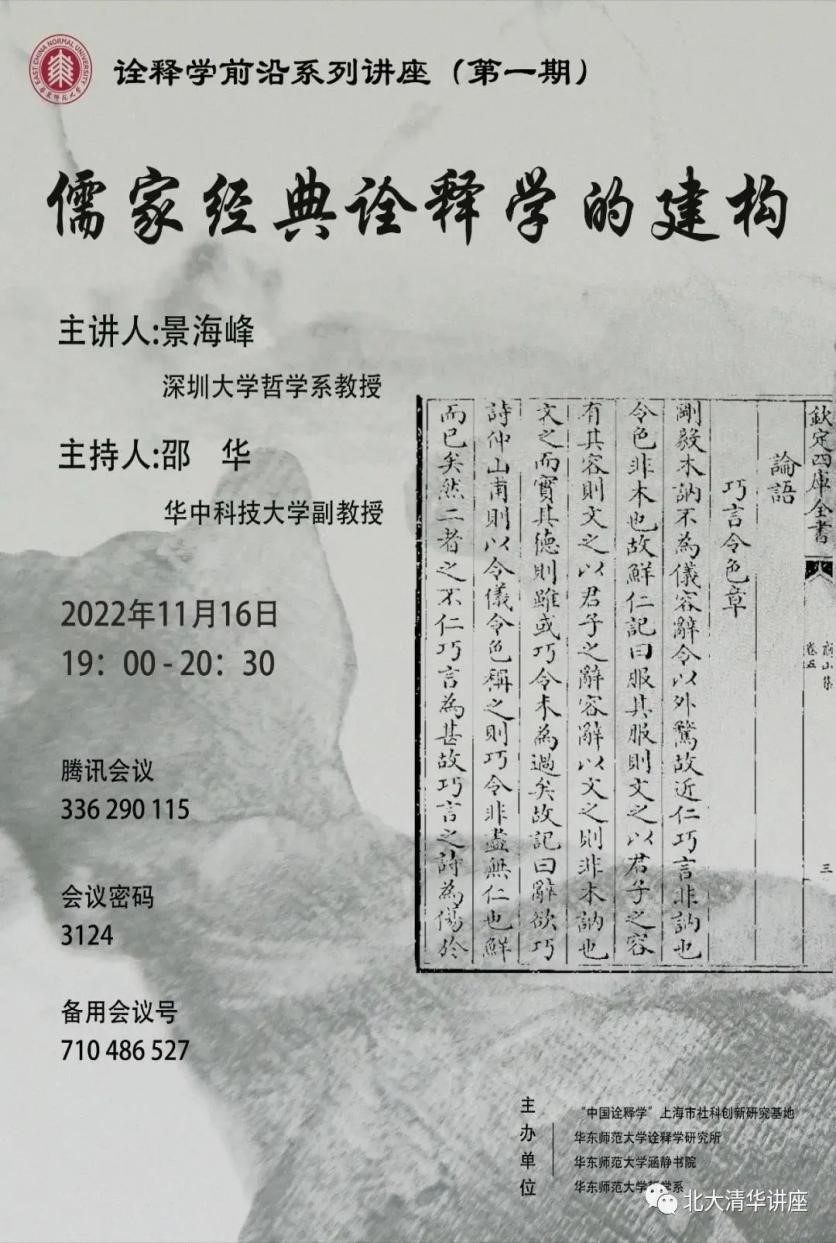 EAST CHINA NORMAL UNIVERSITY
诠释学前沿系列讲座（第一期）
儒家经典诠释学的建构
主讲人:景海峰
深圳大学哲学系教授
主持人:邵 华
华中科技大学副教授
2022年11月16日
19：00-20：30
腾讯会议
336 290 115
会议密码
3124
备用会议号
710 486 527
欽定四庫全書
論語
巧言令色章
剛毅木訥不為儀容辭令以外驚故近仁巧言非訥也
令色非木也故鮮仁記曰服其服則文之以君子之容
有其容則文之以君子之辭容辭以文之則非木訥也
文之而實其德則雖或巧令未為過矣故記曰辭欲巧
詩仲山甫則以令儀令色稱之則巧令非盡無仁也鮮
而已矣然二者之不仁巧言為甚故巧言之詩為傷於
卷五
三
主办单位
“中国诠释学”上海市社科创新研究基地
华东师范大学诠释学研究所
华东师范大学涵静书院
华东师范大学哲学系
北大清华讲座